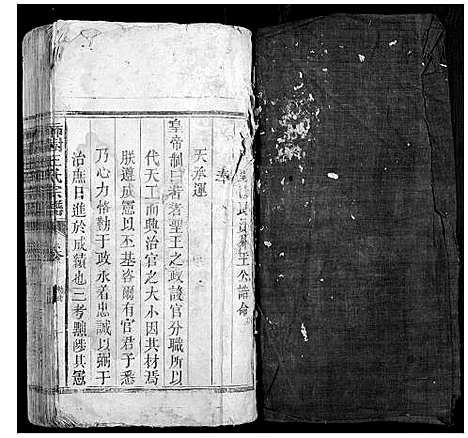 員外王公誥命
奉
天承運
皇帝制曰若昔聖王之政設官分職所以
代天工而興治官之大小因其材焉
朕遵成憲以丕基咨爾有官君子悉
乃心力恪勤于政永着忠誠以弼于
治庶日進於成績也三考黜陟其憲
王氏宗譜